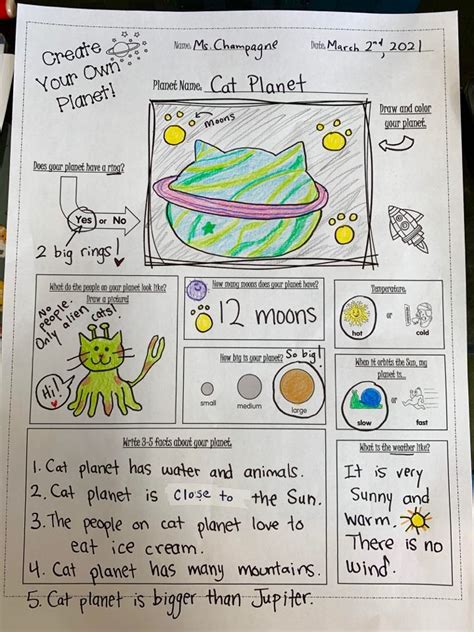 Create Your Own Planet!
Name: Ms. Champagne
Date: March 2nd, 2021
Planet Name: Cat Planet
Draw and color your planet.
moons
Does your planet have a ring?
Yes or No
2 big rings!
What do the people on your planet look like? Draw a picture!
No people. Only alien cats!
Hi!
How many moons does your planet have?
12 moons
Temperature
hot or cold
How big is your planet?
So big!
small medium large
When it orbits the Sun, my planet is...
slow or fast
Write 3-5 facts about your planet.
1. Cat planet has water and animals.
2. Cat planet is close to the Sun.
3. The people on cat planet love to
eat ice cream.
4. Cat planet has many mountains.
5. Cat planet is bigger than Jupiter.
What is the weather like?
It is very
Sunny and
warm.
There is no
wind.